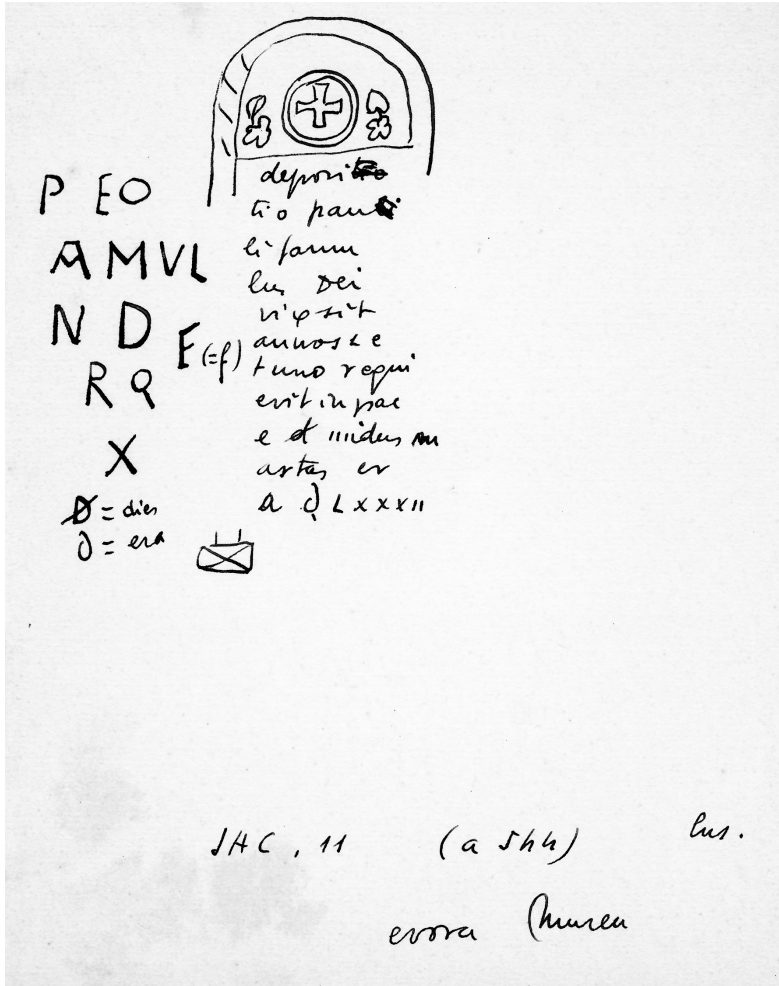 P EO
AMVL
N D
E (=f)
R Q
X
D = dies
= era
deposi
tio pau
li famu
lus Dei
vixsit
annos L e
t uno requi
evit in pac
e d iiidus m
artas er
a D LXXXII
IHC, 11 (a 544) lus.
evora Museu